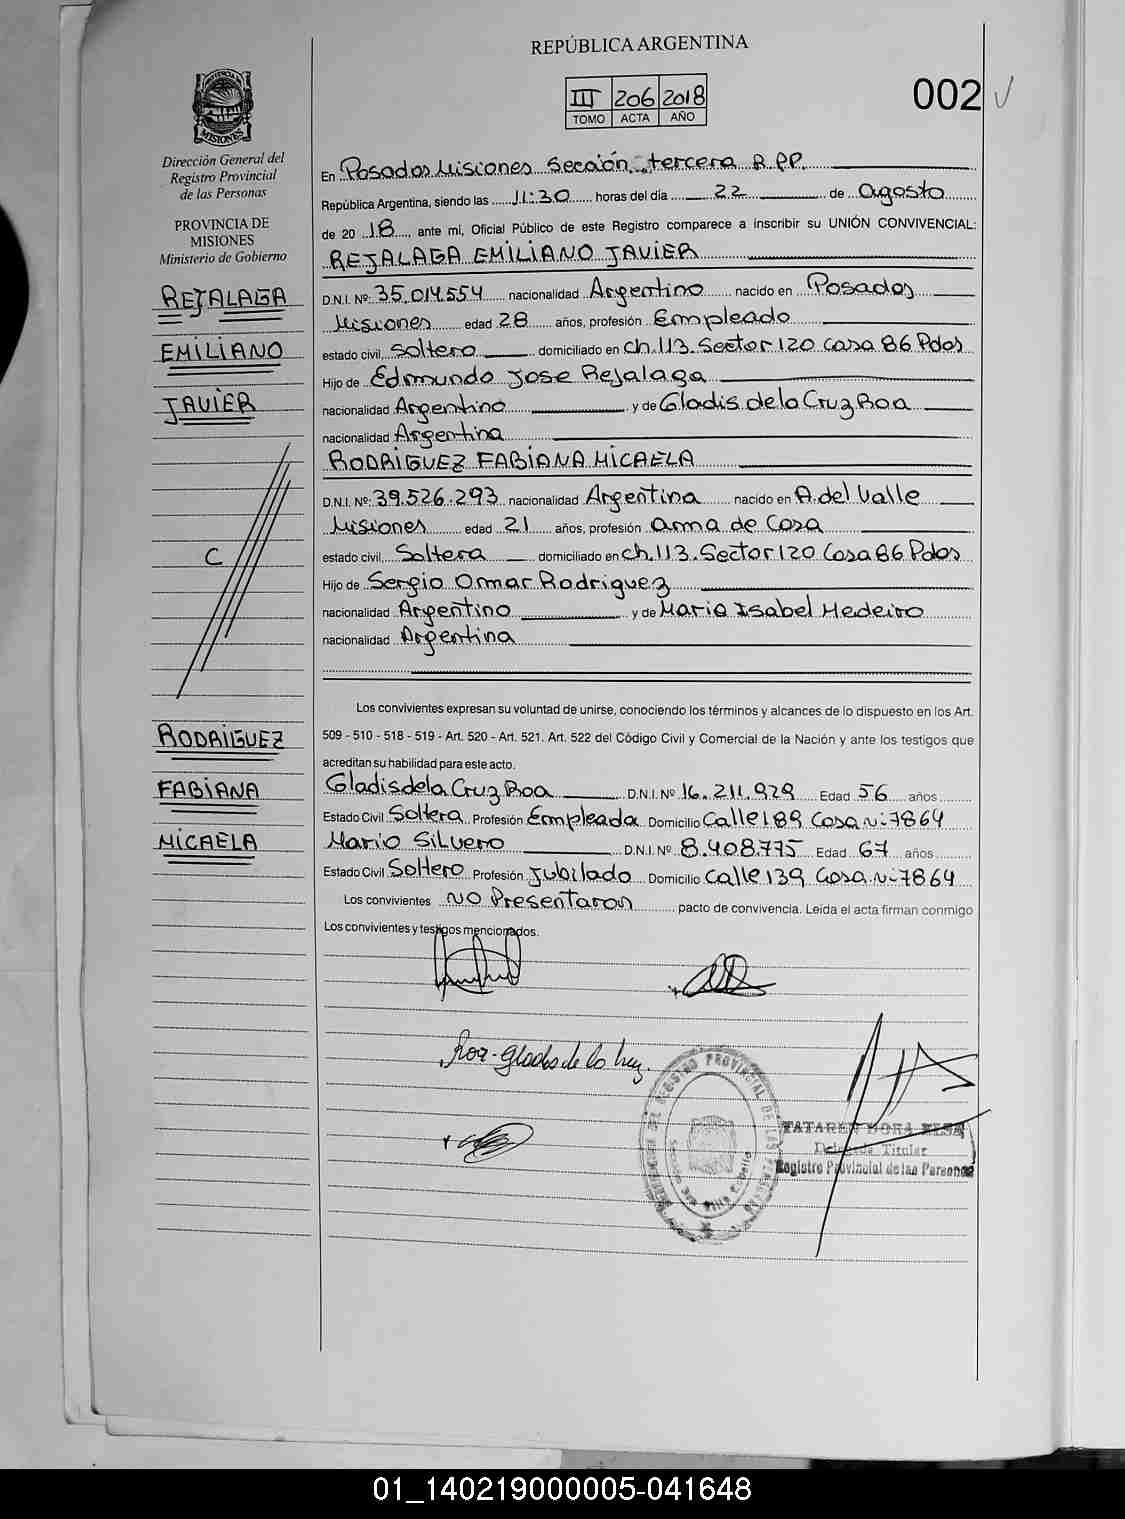 REPÚBLICA ARGENTINA
III 206 2018
TOMO ACTA AÑO
002
PROVINCIA DE
MISIONES
Dirección General del
Registro Provincial
de las Personas
PROVINCIA DE
MISIONES
Ministerio de Gobierno
REJALAGA
EMILIANO
JAVIER
C
RODRIGUEZ
FABIANA
MICAELA
En Posadas Misiones Sección tercera R.PP.
República Argentina, siendo las 11:30 horas del día 22 de Agosto
de 20 18, ante mi, Oficial Público de este Registro comparece a inscribir su UNIÓN CONVIVENCIAL:
REJALAGA EMILIANO JAVIER
D.N.I. Nº: 35.014.554 nacionalidad Argentino nacido en Posadas
Misiones edad 28 años, profesión Empleado
estado civil, Soltero domiciliado en Ch.113.Sector 120 Casa 86 Pdas
Hijo de Edmundo Jose Rejalaga
nacionalidad Argentino y de Gladis de la Cruz Boa
nacionalidad Argentina
RODRIGUEZ FABIANA MICAELA
D.N.I. Nº: 39.526.293 nacionalidad Argentina nacido en A.del Valle
Misiones edad 21 años, profesión ama de Casa
estado civil, Soltera domiciliado en Ch.113.Sector 120 Casa 86 Pdas
Hijo de Sergio Omar Rodriguez
nacionalidad Argentino y de Maria Isabel Medeiro
nacionalidad Argentina
Los convivientes expresan su voluntad de unirse, conociendo los términos y alcances de lo dispuesto en los Art.
509 - 510 - 518 - 519 - Art. 520 - Art. 521. Art. 522 del Código Civil y Comercial de la Nación y ante los testigos que
acreditan su habilidad para este acto.
Gladis de la Cruz Boa D.N.I. Nº 16.211.929 Edad 56 años
Estado Civil Soltera Profesión Empleada Domicilio Calle 189 Casa N:7864
Mario Silvero D.N.I. Nº 8.408.775 Edad 67 años
Estado Civil Soltero Profesión Jubilado Domicilio Calle 139 Casa N:7864
Los convivientes NO Presentaron pacto de convivencia. Leída el acta firman conmigo
Los convivientes y testigos mencionados.
Boa - Gladis de la Cruz
TATAREN DORA ELSA
Delegada Titular
Registro Provincial de las Personas
01_140219000005-041648